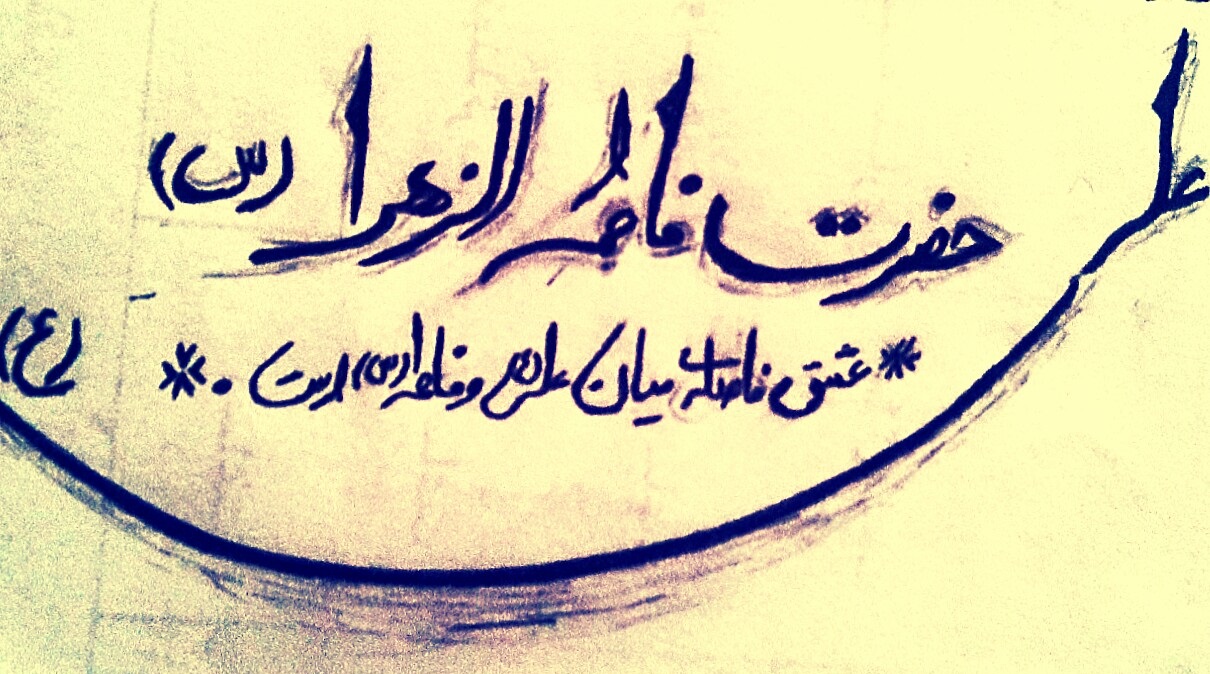 حضرت فاطمه الزهرا (س)
* عشق فاصله میان علی (ع) و فاطمه (س) است . *
علی (ع)